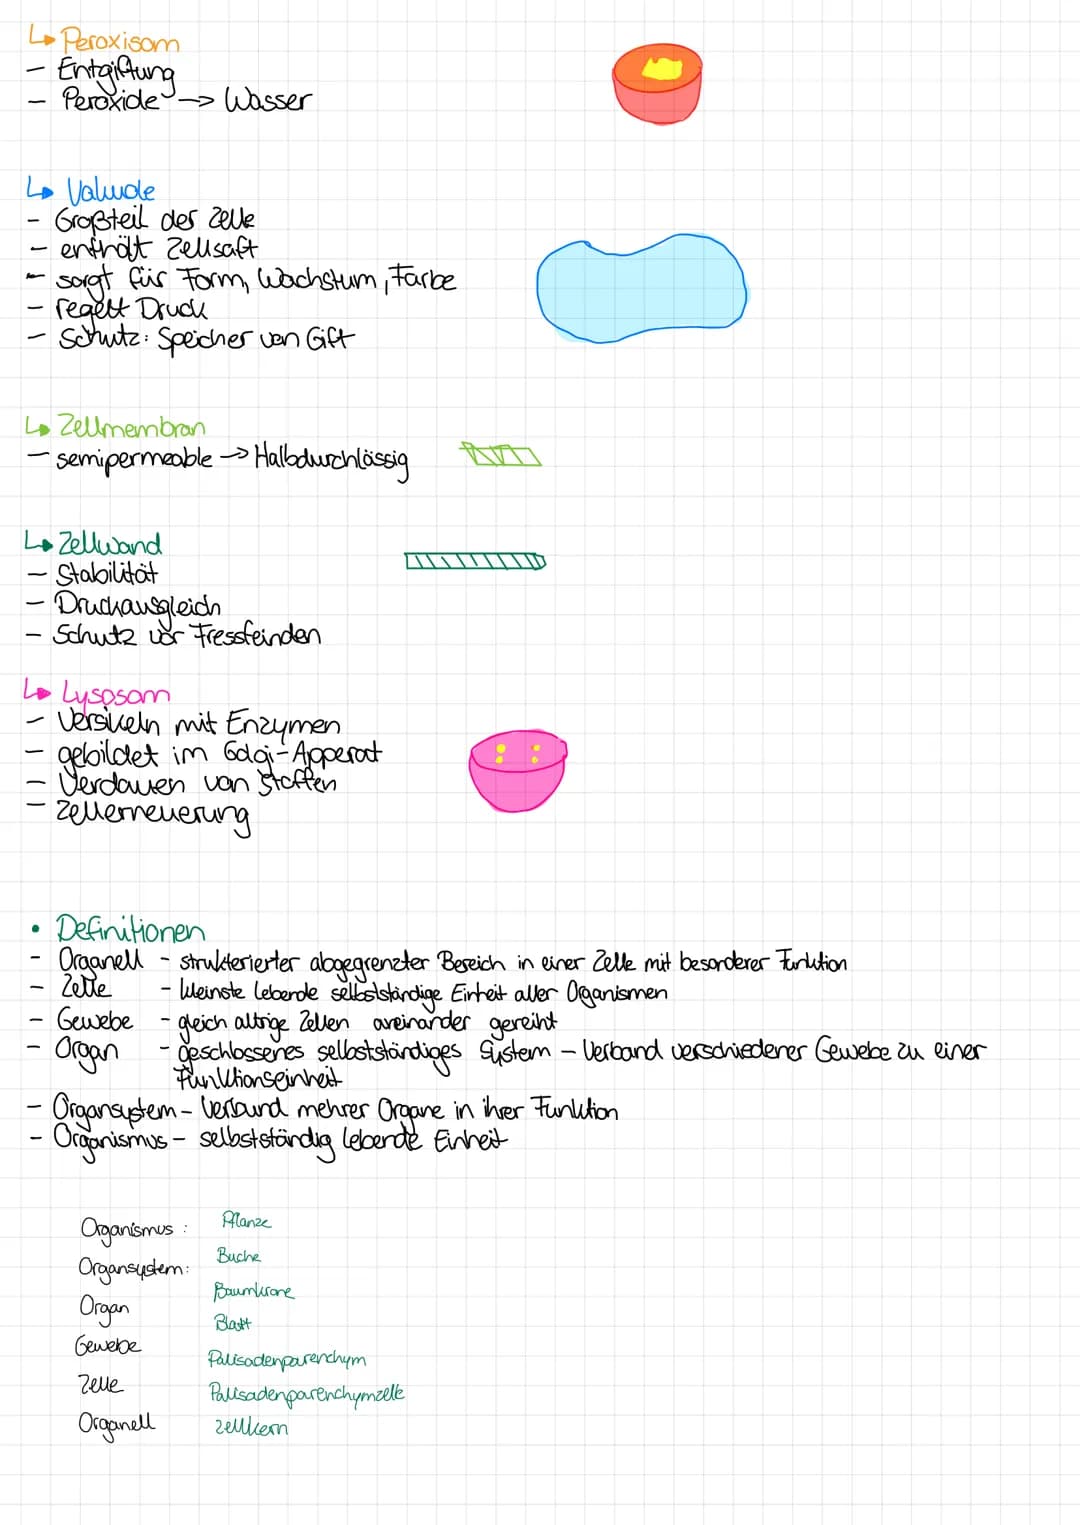 ↳ Peroxisom
- Entgiftung
- Peroxide → Wasser
↳ Vakuole
- Großteil der Zelle
- enthält Zellsaft
- sorgt für Form, Wachstum, Farbe
- regelt Druck
- Schutz: Speicher von Gift
↳ Zellmembran
- semipermeable → Halbdurchlässig
↳ Zellwand
- Stabilität
- Druckausgleich
- Schutz vor Fressfeinden
↳ Lysosom
- Versikeln mit Enzymen
- gebildet im Golgi-Apperat
- Verdauen von Stoffen
- Zellerneuerung
• Definitionen
- Organell - strukterierter abgegrenzter Bereich in einer Zelle mit besonderer Funktion
- Zelle - kleinste lebende selbstständige Einheit aller Organismen
- Gewebe - gleich altrige Zellen aneinander gereiht
- Organ - geschlossenes selbstständiges System - Verband verschiedener Gewebe zu einer
Funktionseinheit
- Organsystem - Verbund mehrer Organe in ihrer Funktion
- Organismus - selbstständig lebende Einheit
Organismus : Pflanze
Organsystem: Buche
Baumkrone
Organ Blatt
Gewebe Palisadenparenchym
Zelle Palisadenparenchymzelle
Organell Zellkern